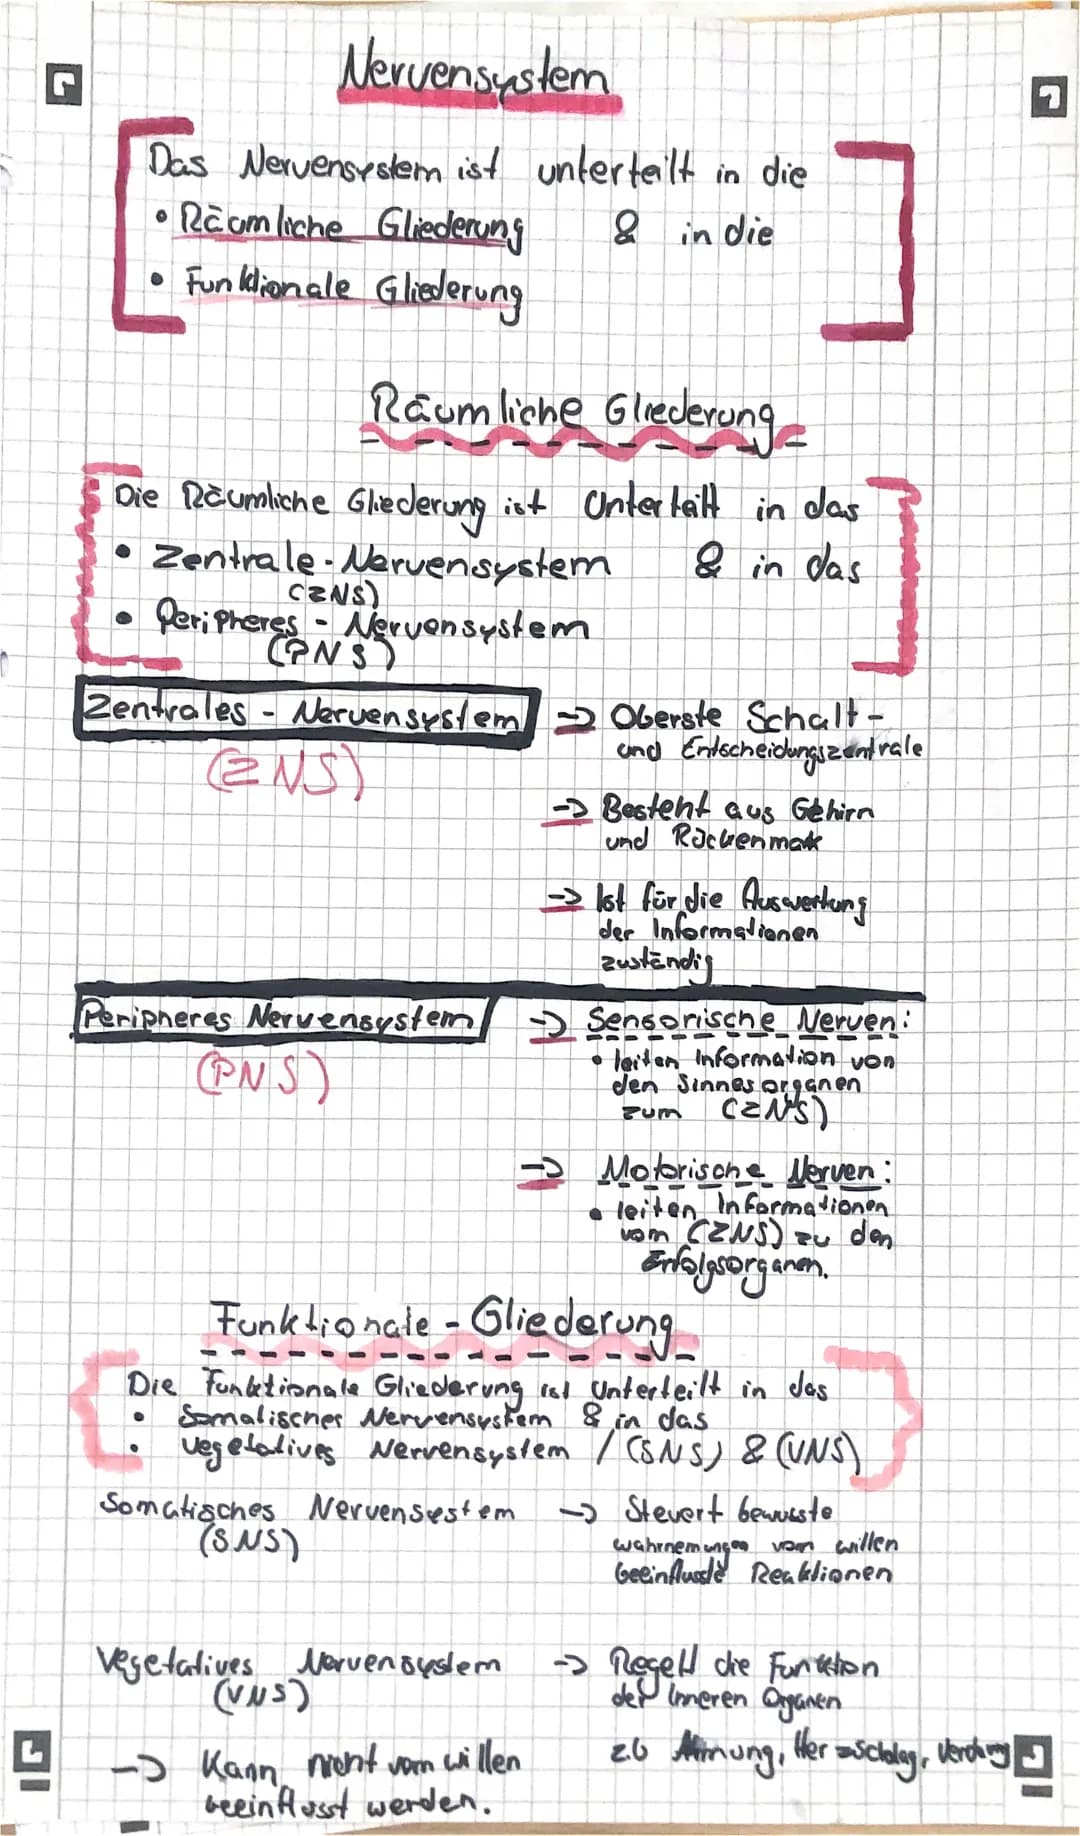 Nervensystem
Das Nervensystem ist unterteilt in die
• Räumliche Gliederung & in die
• Funktionale Gliederung
Räumliche Gliederung
Die Räumliche Gliederung ist Unterteilt in das
• Zentrale-Nervensystem & in das
(ZNS)
• Peripheres - Nervensystem
(PNS)
Zentrales - Nervensystem
(ZNS)
-> Oberste Schalt-
und Entscheidungszentrale
-> Besteht aus Gehirn
und Rückenmak
-> Ist für die Auswertung
der Informationen
zuständig
Peripheres Nervensystem
(PNS)
-> Sensorische Nerven:
• leiten Information von
den Sinnesorganen
zum (ZNS)
-> Motorische Nerven:
• leiten Informationen
vom (ZNS) zu den
Erfolgsorganen.
Funktionale - Gliederung
Die Funktionale Gliederung ist Unterteilt in das
• Somatisches Nervensystem & in das
• Vegetatives Nervensystem / (SNS) & (VNS)
Somatisches Nervensystem
(SNS)
-> Steuert bewusste
wahrnemungen vom willen
beeinflusste Reaktionen
Vegetatives Nervensystem
(VNS)
-> Regelt die Funktion
der Inneren Organen
z.b Atmung, Herzschlag, Verdauung
-> Kann nicht vom willen
beeinflusst werden.